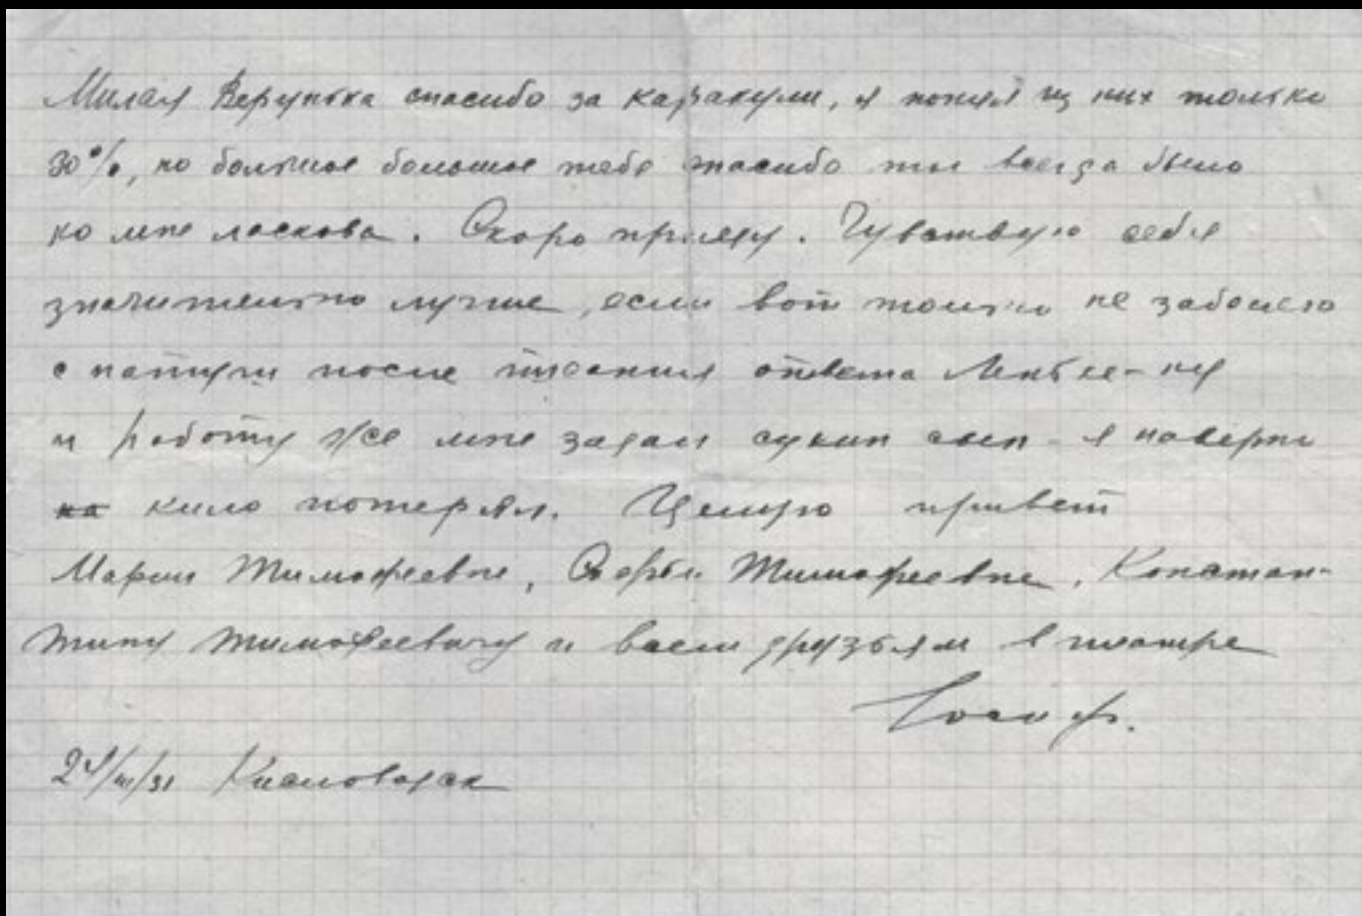 Милая Верунька спасибо за каракули, я понял из них только
30%, но большое большое тебе спасибо ты всегда была
ко мне ласкова. Скоро приеду. Чувствую себя
значительно лучше, если вот только не заболею
с натуги после писания ответа
и работу же мне задал сукин сын - я наверно
кило потерял. Целую привет
Марии Тимофеевне, Софье Тимофеевне, Констан-
тину Тимофеевичу и всем друзьям в театре
Иосиф.
24/III/31 Кисловодск